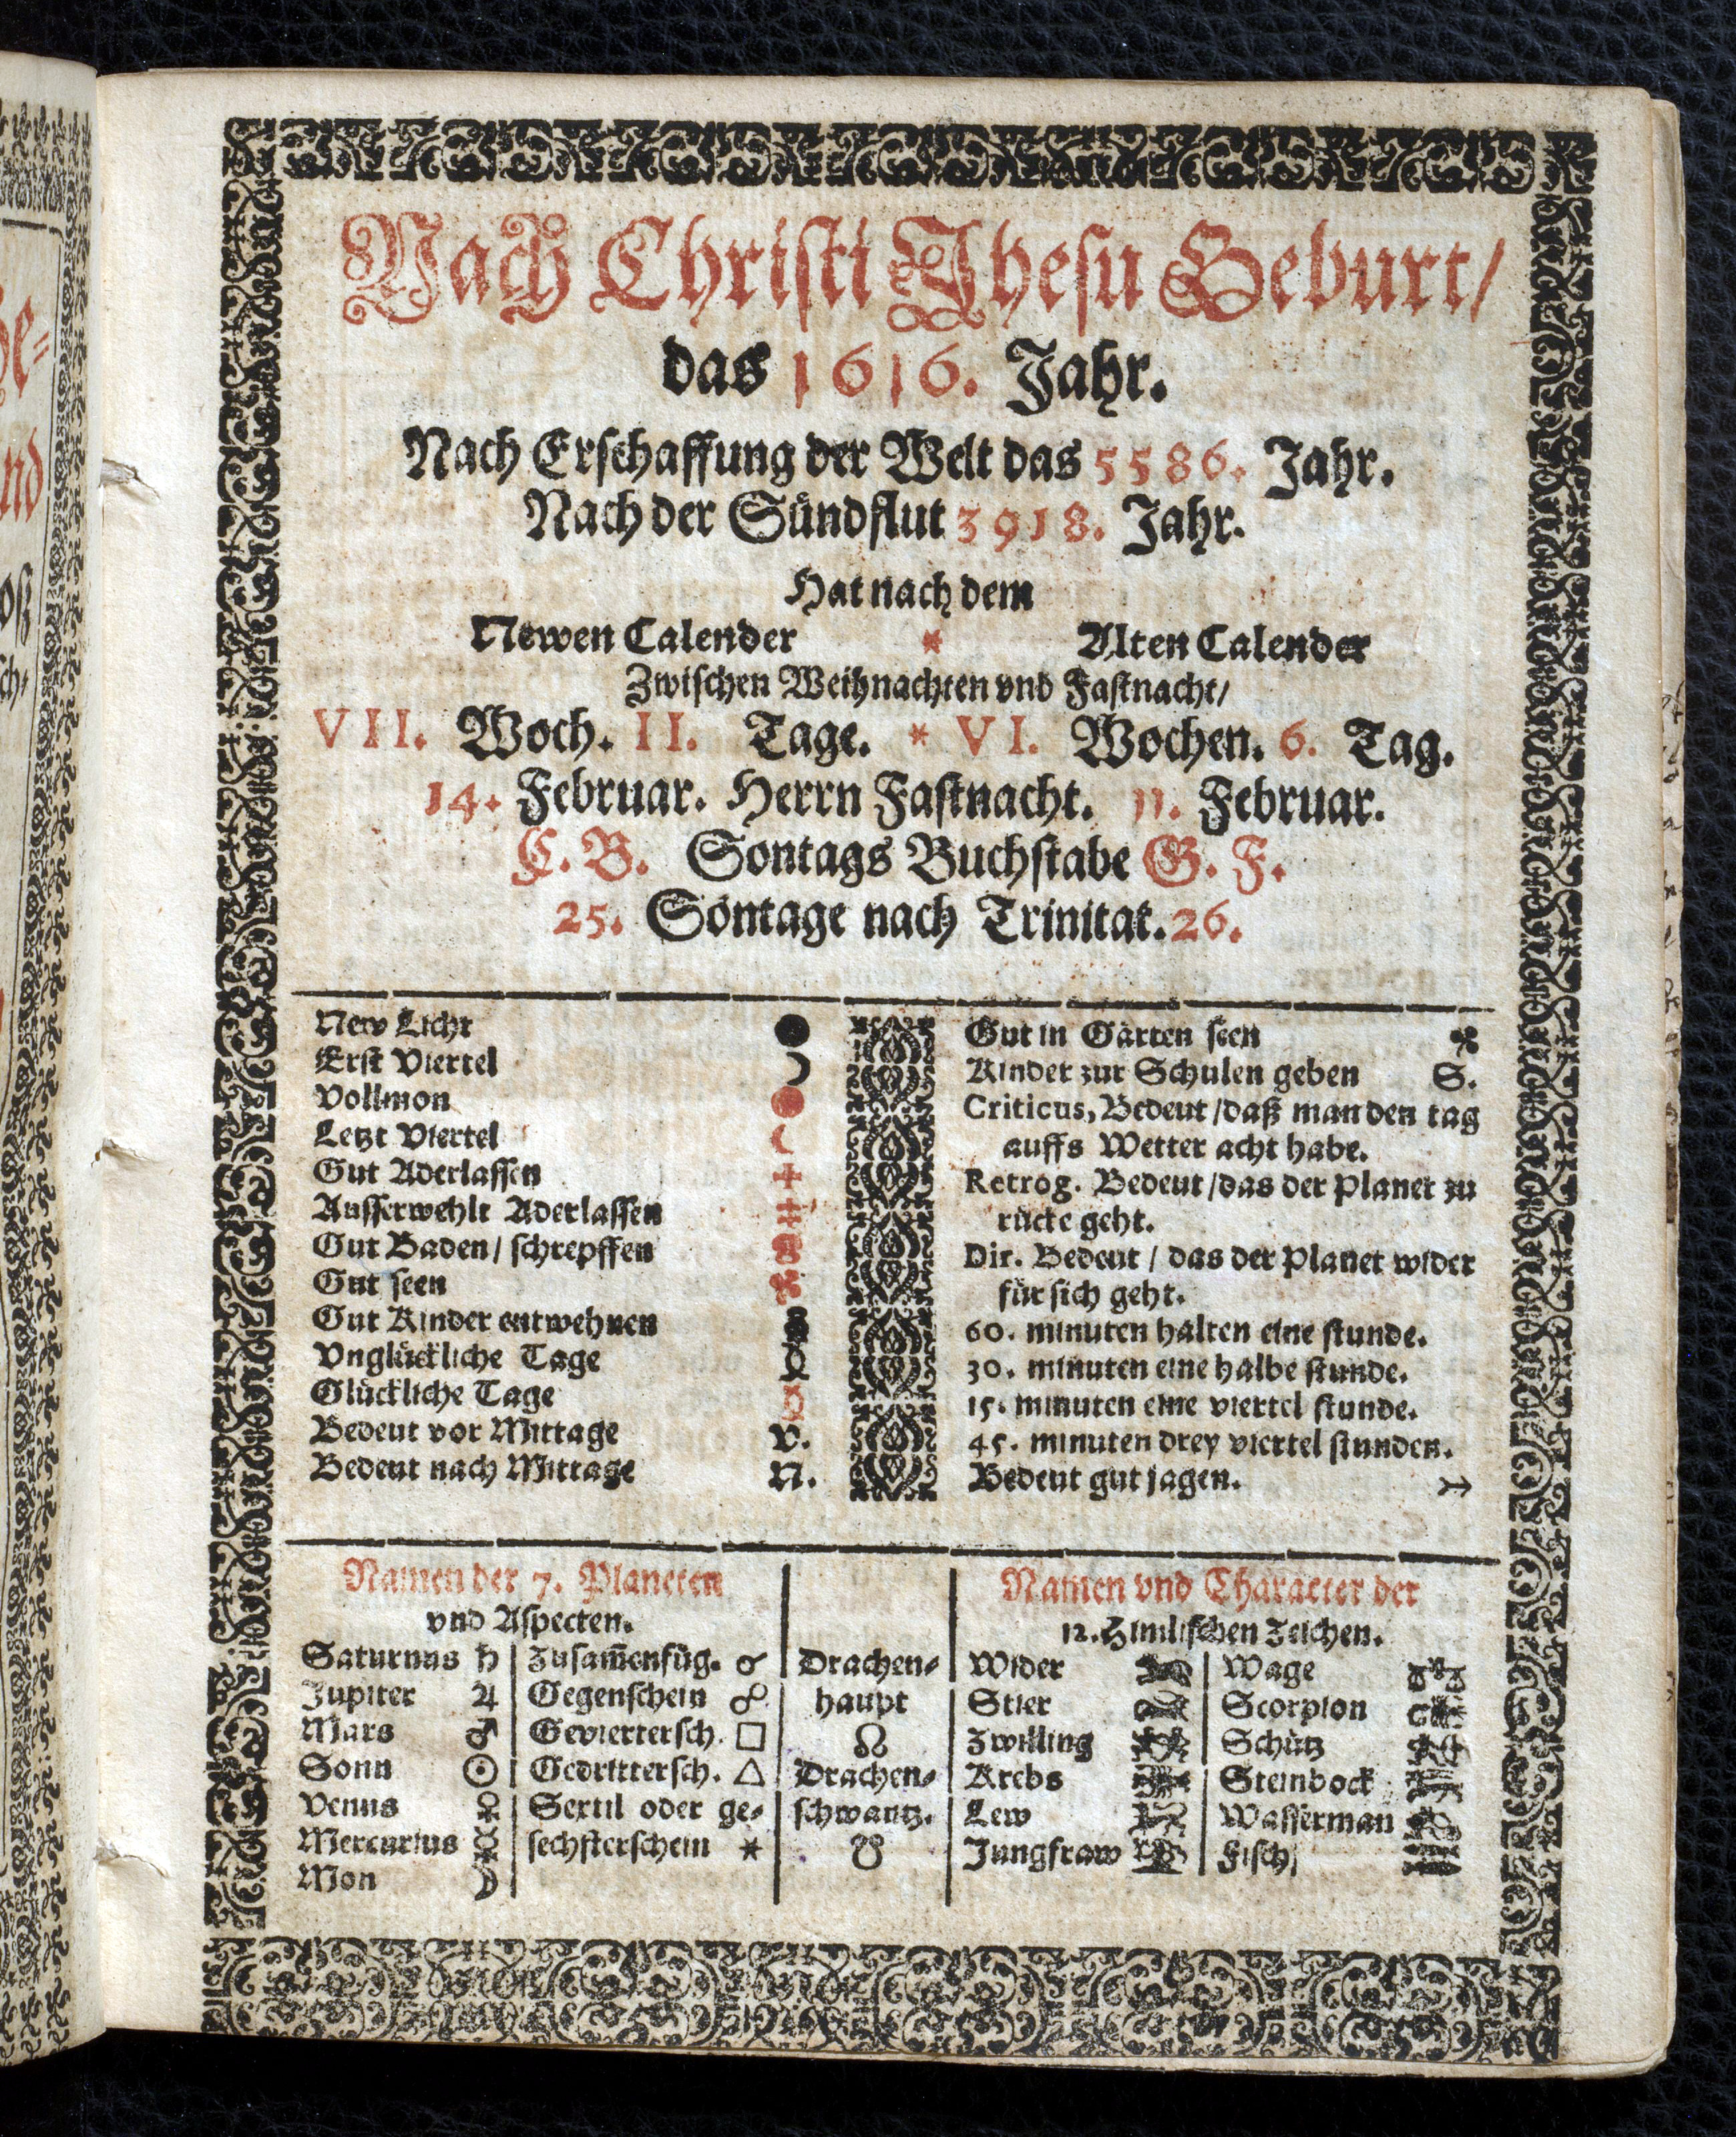 Nach Christi Jhesu Geburt/
das 1616. Jahr.
Nach Erschaffung der Welt das 5586. Jahr.
Nach der Sündflut 3918. Jahr.
Hat nach dem
Newen Calender * Alten Calender
Zwischen Weihnachten vnd Fastnacht/
VII. Woch. II. Tage. * VI. Wochen. 6. Tag.
14. Februar. Herrn Fastnacht. 11. Februar.
C. B. Sontags Buchstabe G. F.
25. Sontage nach Trinitat. 26.
New Licht ●
Erst Viertel ☽
Vollmon ●
Letzt Viertel ☾
Gut Aderlassen +
Ausserwehlt Aderlassen ‡
Gut Baden/ schrepffen
Gut seen
Gut Kinder entwehnen
Vnglückliche Tage
Glückliche Tage
Bedeut vor Mittage v.
Bedeut nach Mittage N.
Gut in Gärten seen
Kinder zur Schulen geben S.
Criticus, Bedeut/daß man den tag
auffs Wetter acht habe.
Retrog. Bedeut/das der Planet zu
rücke geht.
Dir. Bedeut/ das der Planet wider
für sich geht.
60. minuten halten eine stunde.
30. minuten eine halbe stunde.
15. minuten eine viertel stunde.
45. minuten drey viertel stunden.
Bedeut gut jagen. ↣
Namen der 7. Planeten
vnd Aspecten.
Saturnus ♄
Jupiter ♃
Mars ♂
Sonn ☉
Venus ♀
Mercurius ☿
Mon ☽
Zusam̃enfüg. ☌
Gegenschein ☍
Gevierterschein. □
GedritterscH. △
Sextil oder ge-
sechsterschein *
Drachen-
haupt
☊
Drachen-
schwantz.
☋
Namen vnd Character der
12. Himlischen Zeichen.
Wider
Stier
Zwilling
Krebs
Lew
Jungfraw
Wage
Scorpion
Schütz
Steinbock
Wasserman
Fisch